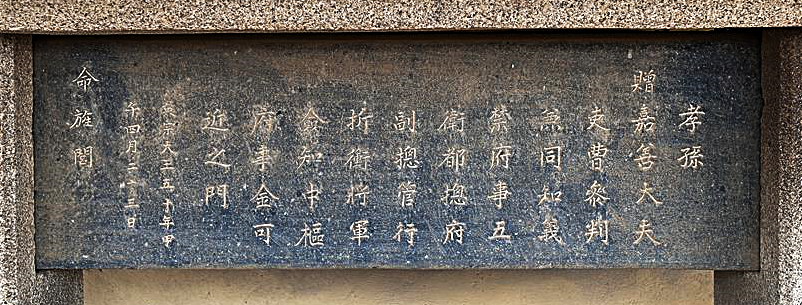 孝孫
贈嘉善大夫
吏曹叅判
兼同知義
禁府事五
衛都摠府
副摠管行
折衝將軍
僉知中樞
府事金可
近之門
英宗大王五十年甲
午四月二十三日
命旌閭